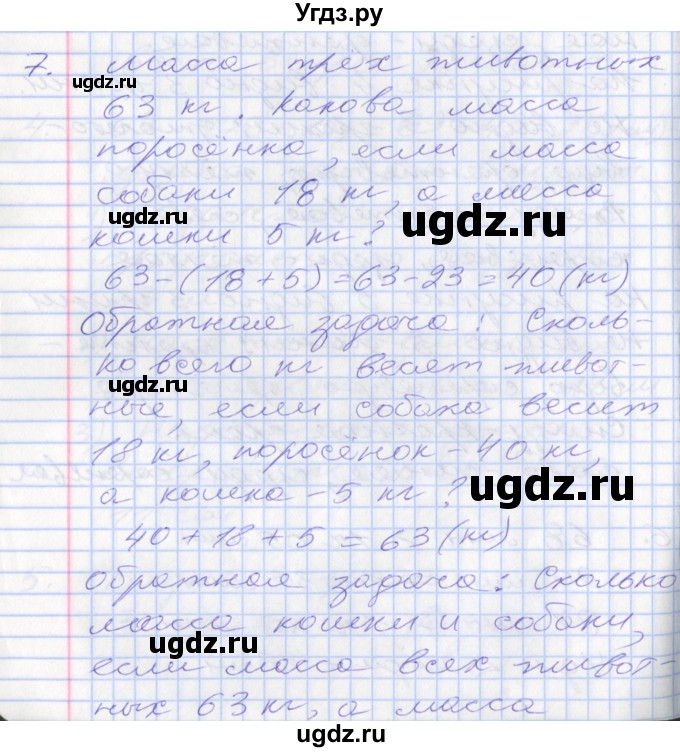 Угдз.ру
7. Масса трёх животных
ugdz.ru
63 кг. Какова масса
поросёнка, если масса
собаки 18 кг, а масса
ugdz.ru
ugdz.ru
кошки 5 кг?
63-(18+5)=63-23=40(кг)
Обратная задача: Сколь-
ко всего кг весят живот-
ugdz.ru
ные, если собака весит
18 кг, поросёнок - 40 кг,
ugdz.ru
а кошка - 5 кг?
40+18+5=63(кг)
Обратная задача: Сколько
масса кошки и собаки,
ugdz.ru
если масса всех живот-
ных 63 кг, а масса
ugdz.ru